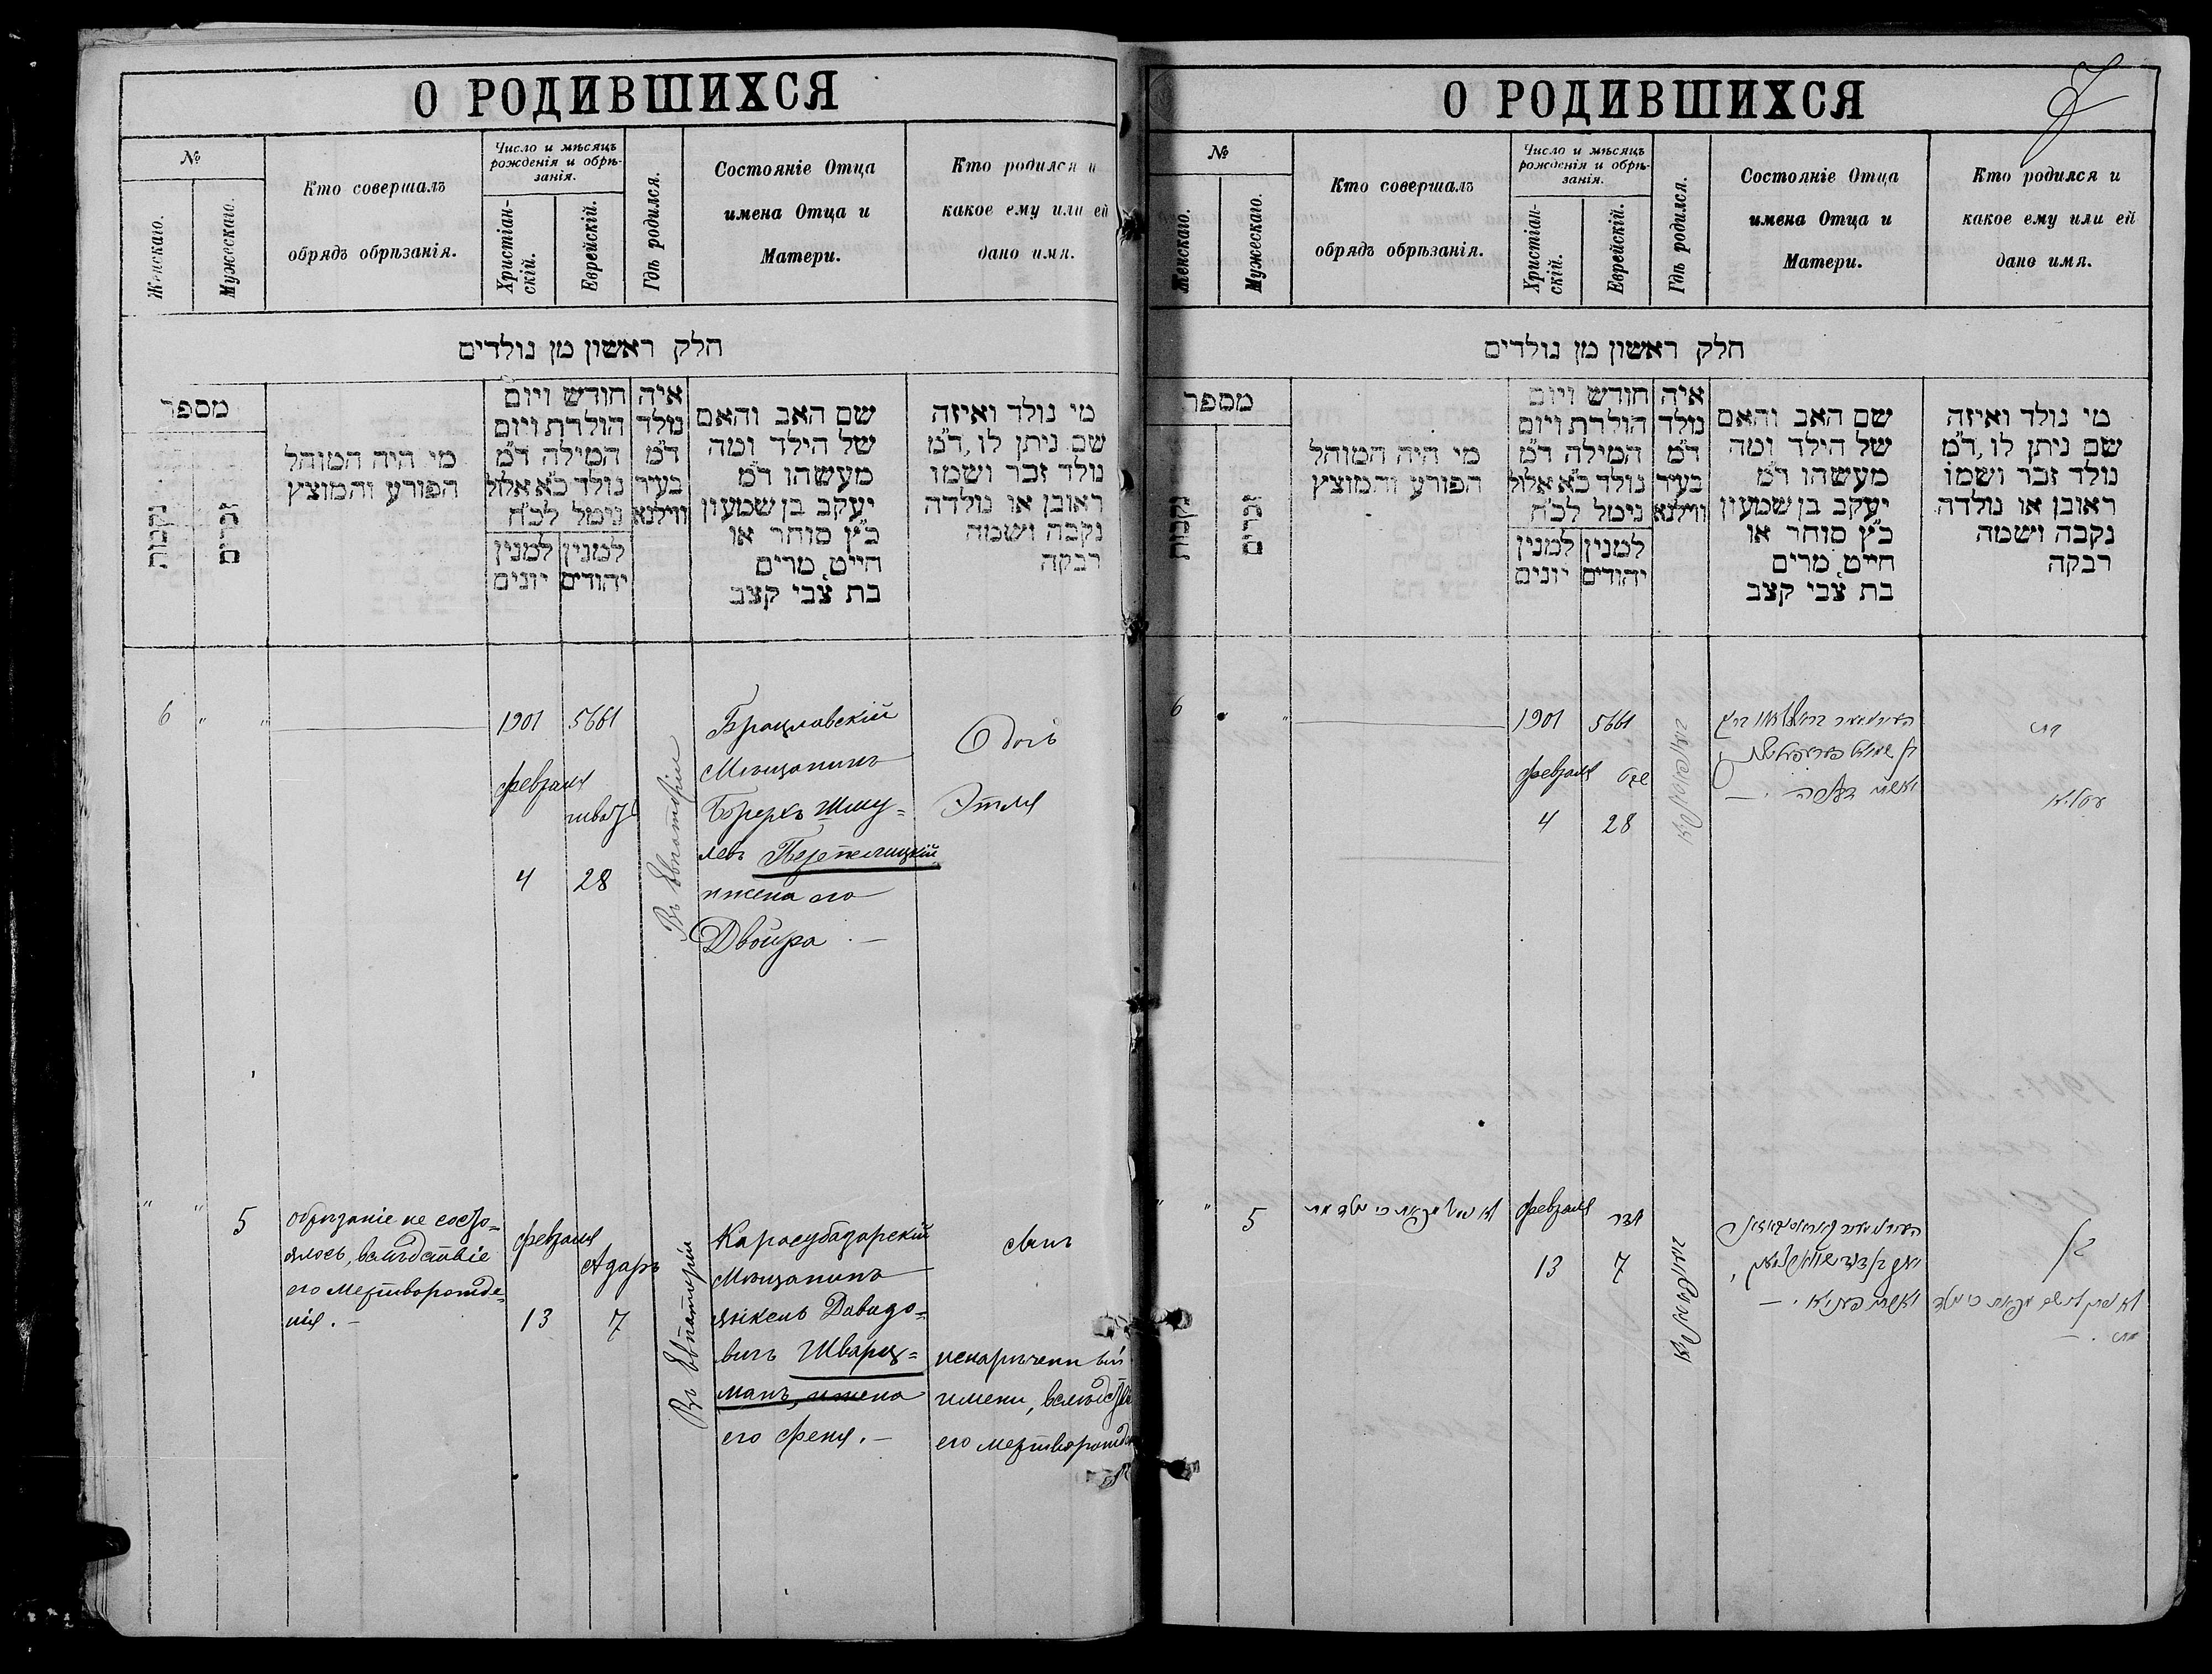 О РОДИВШИХСЯ
№
Женскаго.
Мужескаго.
Кто совершалъ
обрядъ обрѣзанія.
Число и мѣсяцъ
рожденія и обрѣ-
занія.
Христіан-
скій.
Еврейскій.
Гдѣ родился.
Состояніе Отца
имена Отца и
Матери.
Кто родился и
какое ему или ей
дано имя.
חלק ראשון מן נולדים
מספר
נקבות
זכרים
מי היה המוהל
הפורע והמוצץ
חודש ויום
הולדת ויום
המילה ד״מ
נולד כ״א אלול
נימל לכ״ח
למנין
יונים
למנין
יהודים
איה
נולד
ד״מ
בעיר
ווילנא
שם האב והאם
של הילד ומה
מעשהו ד״מ
יעקב בן שמעון
כ״ץ סוחר או
חייט, מרים
בת צבי קצב
מי נולד ואיזה
שם ניתן לו, ד״מ
נולד זכר ושמו
ראובן או נולדה
נקבה ושמה
רבקה
6 " "
1901 5661
февраля
шватъ
4 28
Въ Евпаторіи
Брацлавскій
Мѣщанинъ
Берекъ Шму=
левъ Перепелицкій
и жена его
Двойра . —
Дочь
Этля
" " 5
обрѣзаніе не состо=
ялось, вслѣдствіе
его мертворожде=
нія. —
февраля
Адаръ
13 7
Въ Евпаторіи
Карасубазарскій
Мѣщанинъ
Давидо=
вичъ Шварц=
манъ, и жена
его Феня. —
сынъ
ненареченный
имени, вслѣдств
его мертворожд
О РОДИВШИХСЯ
7
№
Женскаго.
Мужескаго.
Кто совершалъ
обрядъ обрѣзанія.
Число и мѣсяцъ
рожденія и обрѣ-
занія.
Христіан-
скій.
Еврейскій.
Гдѣ родился.
Состояніе Отца
имена Отца и
Матери.
Кто родился и
какое ему или ей
дано имя.
חלק ראשון מן נולדים
מספר
נקבות
זכרים
מי היה המוהל
הפורע והמוצץ
חודש ויום
הולדת ויום
המילה ד״מ
נולד כ״א אלול
נימל לכ״ח
למנין
יונים
למנין
יהודים
איה
נולד
ד״מ
בעיר
ווילנא
שם האב והאם
של הילד ומה
מעשהו ד״מ
יעקב בן שמעון
כ״ץ סוחר או
חייט, מרים
בת צבי קצב
מי נולד ואיזה
שם ניתן לו, ד״מ
נולד זכר ושמו
ראובן או נולדה
נקבה ושמה
רבקה
6 "
1901 5661
февраля שבט
4 28
ואשתו דבורה . —
בת
" " 5
февраля אדר
13 7
ואשתו פעניא . —
בן